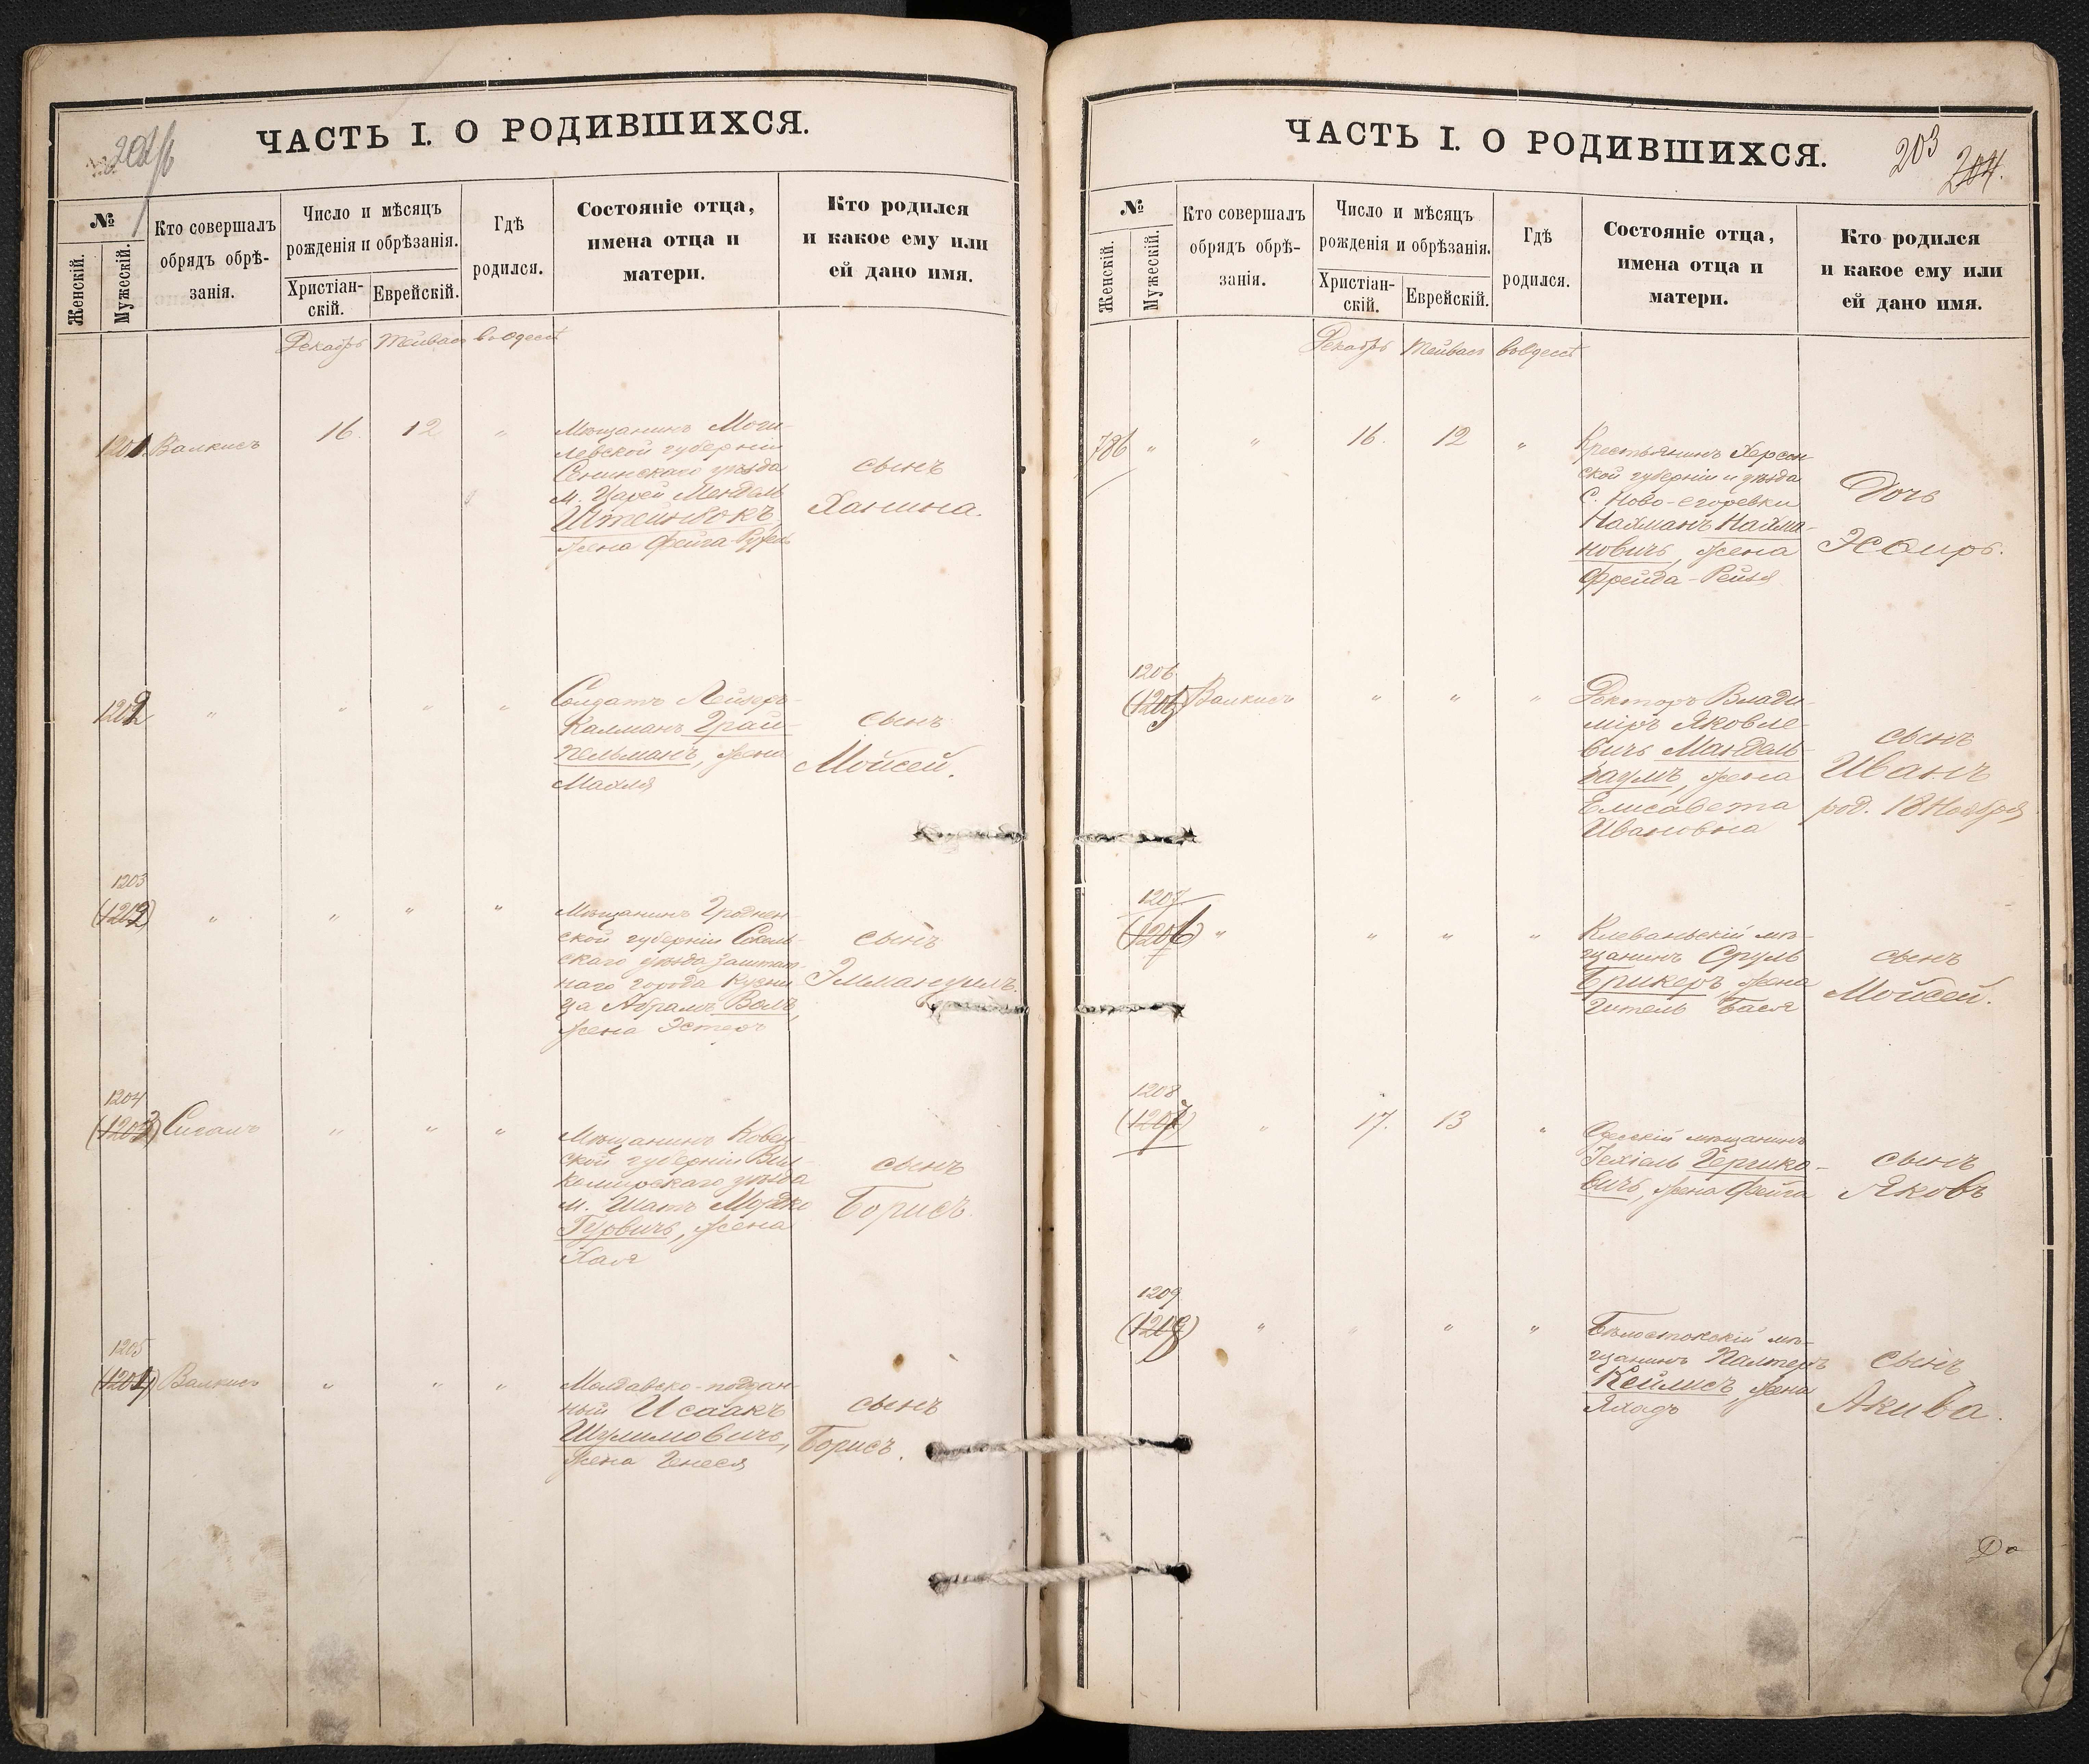 ЧАСТЬ I. О РОДИВШИХСЯ.
№
Женскій.
Мужескій.
Кто совершалъ
обрядъ обрѣ-
занія.
Число и мѣсяцъ
рожденія и обрѣзанія.
Христіан-
скій.
Еврейскій.
Гдѣ
родился.
Состояніе отца,
имена отца и
матери.
Кто родился
и какое ему или
ей дано имя.
Декабрь Тейвасъ въ Одессѣ
1201. Валкисъ 16. 12 "
Мѣщанинъ Моги-
левской губерніи
Сенинскаго уѣзда
м. Царей Мендель
Штейнбокъ,
жена Фейга-
сынъ
Ханина.
1202 " " " "
Солдатъ Лейзеръ-
Калманъ Грай-
пельманъ, жена
Махля
сынъ
Мойсей.
1203
" " " "
Мѣщанинъ Гроднен-
ской губерніи Соколь-
скаго уѣзда заштат-
наго города Кузни-
ца Абрамъ Волъ,
жена Эстеръ
сынъ
Эммануилъ.
1204
(1203) Сигалъ " " "
Мѣщанинъ Ковен-
ской губерніи Вил-
комирскаго уѣзда
м. Шатъ Мордко
Гурвичъ, жена
Хая
сынъ
Борисъ.
1205
(1204) Валкисъ " " "
Молдавско-поддан-
ный Исаакъ
Шулимовичъ,
жена Генеся
сынъ
Борисъ.
ЧАСТЬ I. О РОДИВШИХСЯ.
203
204.
№
Женскій.
Мужескій.
Кто совершалъ
обрядъ обрѣ-
занія.
Число и мѣсяцъ
рожденія и обрѣзанія.
Христіан-
скій.
Еврейскій.
Гдѣ
родился.
Состояніе отца,
имена отца и
матери.
Кто родился
и какое ему или
ей дано имя.
Декабрь Тейвасъ въ Одессѣ
786 " " 16. 12 "
Крестьянинъ Херсон
ской губерніи и уѣзда
с. Ново-Егоревки
Найманъ Найма-
новичъ, жена
Фрейда-Рейзя
Дочь
Эсѳирь.
1206
(1205) Валкисъ " " "
Докторъ Влади-
міръ Яковле-
вичъ Мандель-
баумъ, жена
Елисавета
Ивановна
сынъ
Иванъ
род. 18 Ноября
1207
(1206) " " " "
Клеваньскій мѣ-
щанинъ Сруль
Брикеръ, жена
Гитель Бася
сынъ
Мойсей.
1208
(1207) " 17. 13 "
Одесскій мѣщанинъ
Іехіель Гершко-
вичъ, жена Фейга
сынъ
Яковъ
1209
" " " "
Бѣлостокскій мѣ-
щанинъ
Кейлисъ, жена
сынъ
Акива.
До